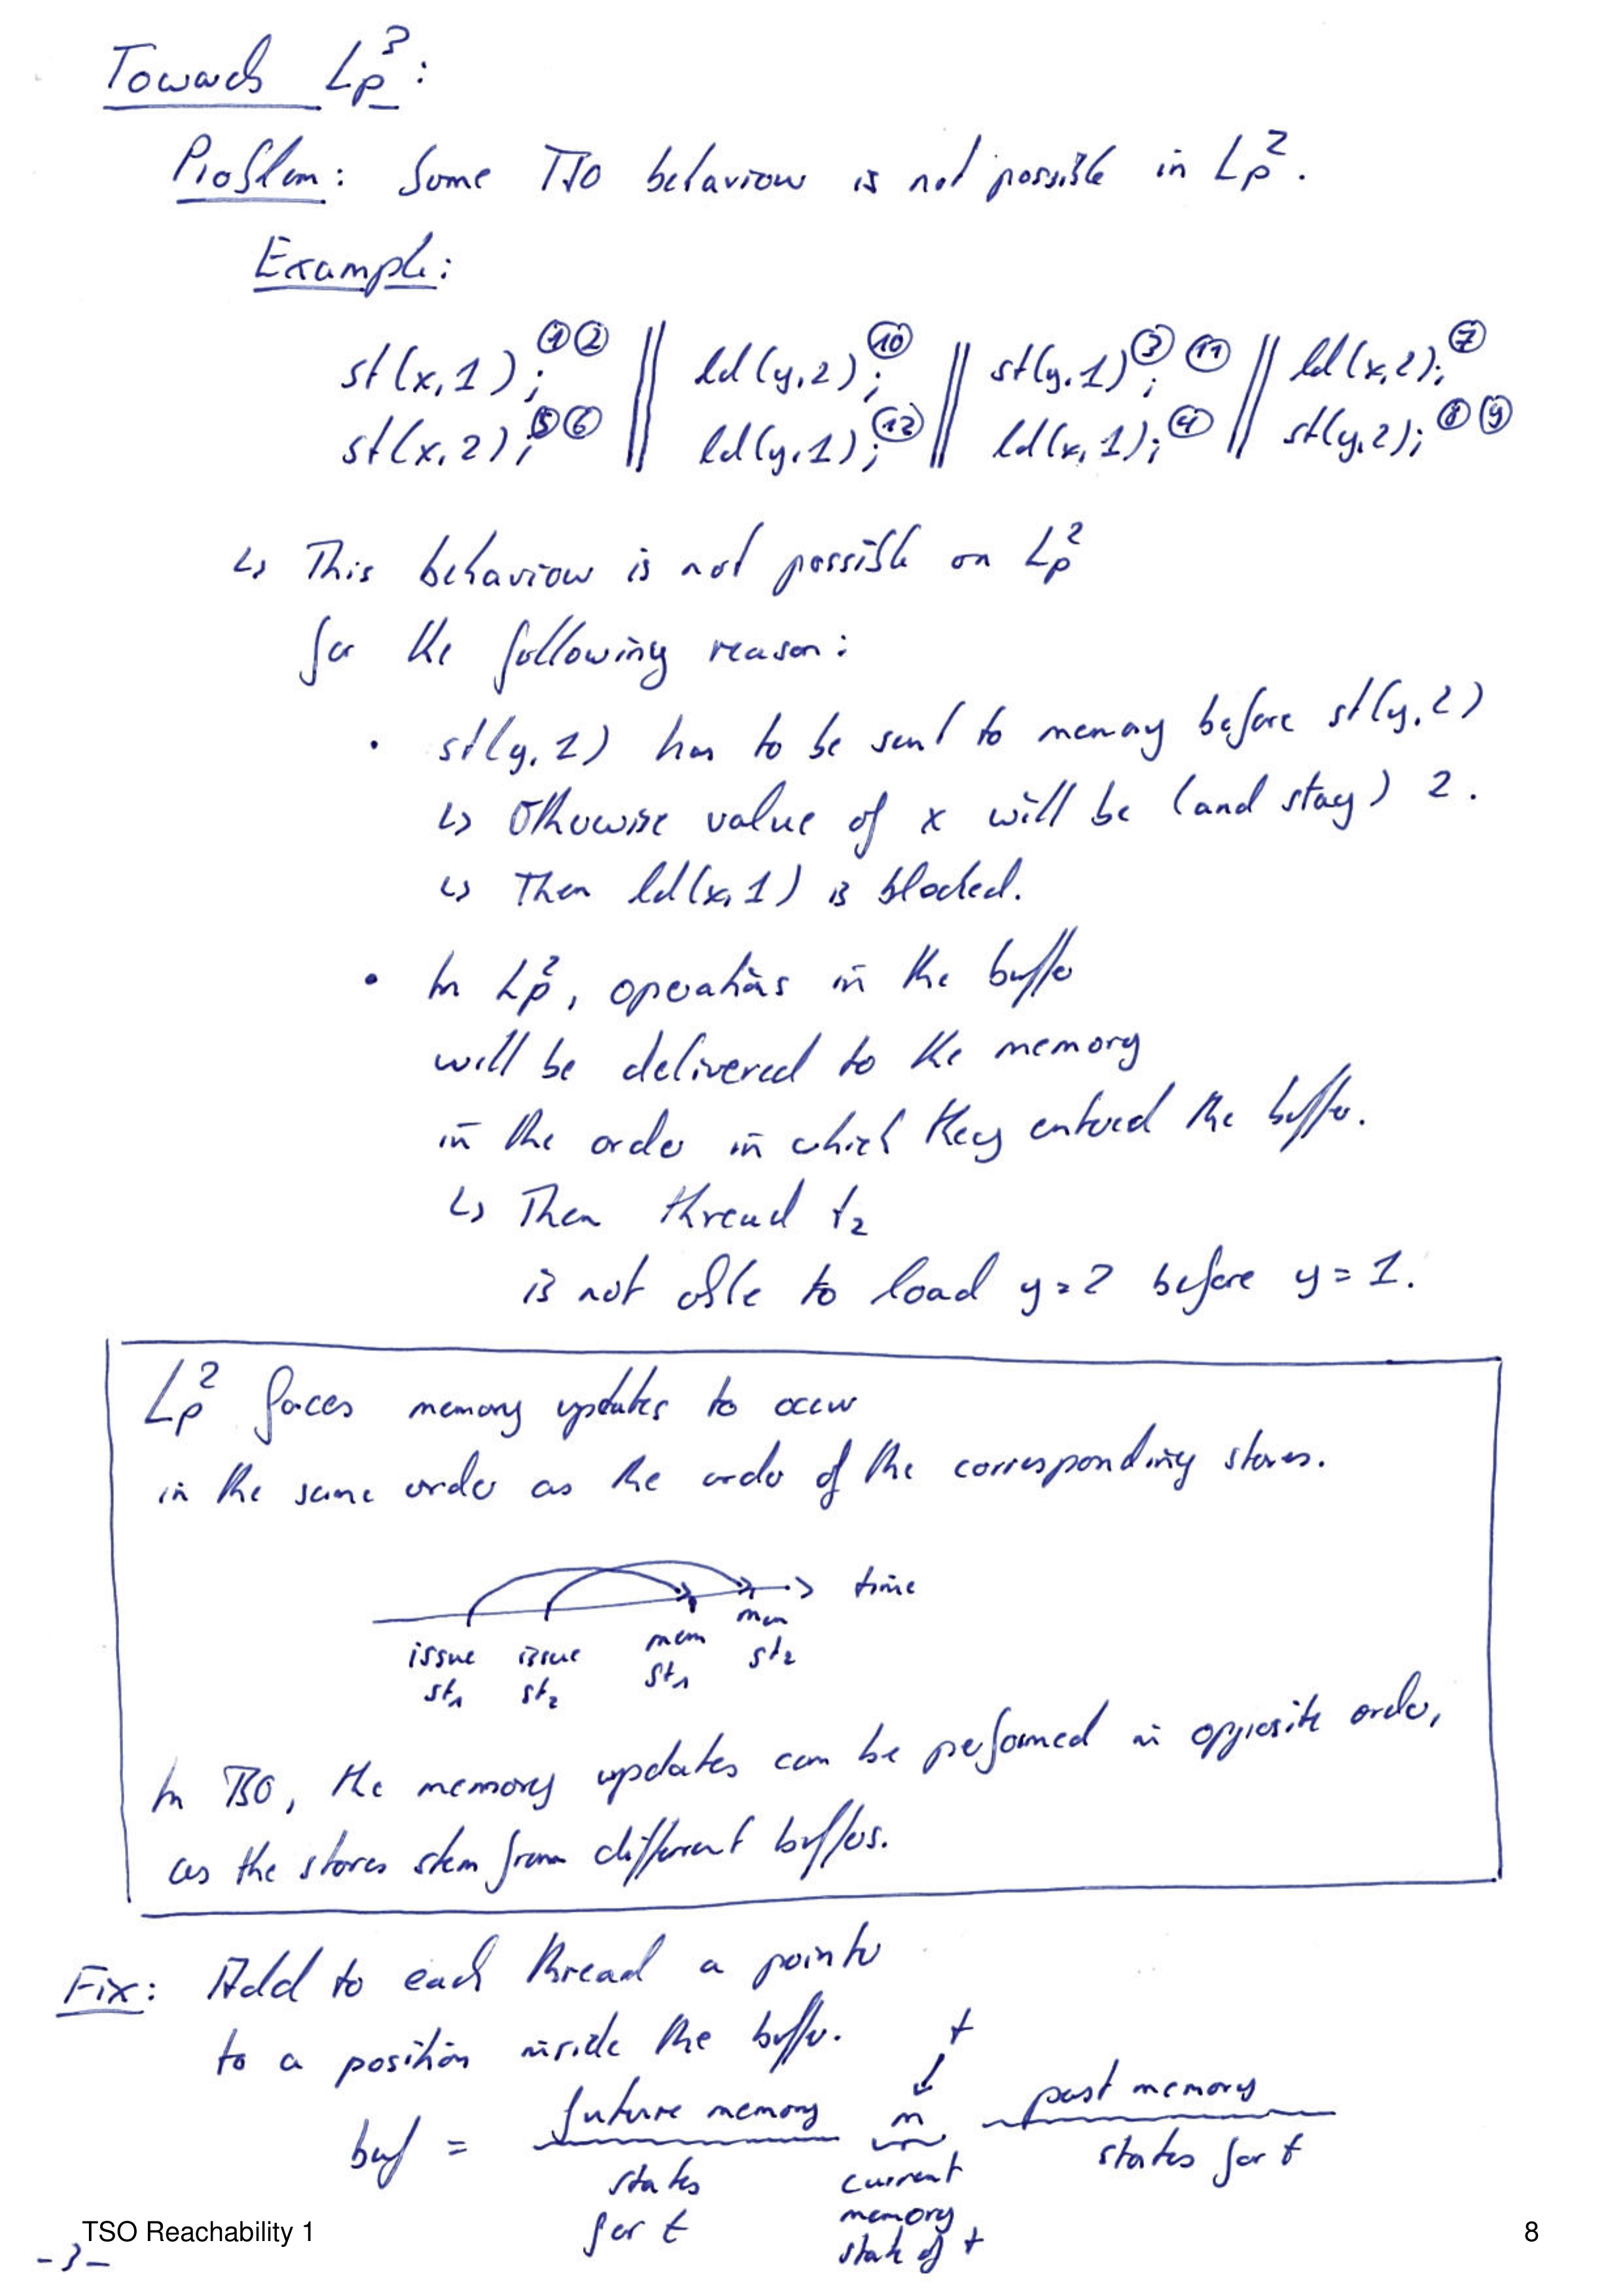 Towards Lp³:
Problem: Some TSO behaviour is not possible in Lp².
Example:
st(x,1); ① ② || ld(y,2); ⑩ || st(y,1); ③ ⑪ || ld(x,2); ⑦
st(x,2); ⑤ ⑥ || ld(y,1); ⑫ || ld(x,1); ④ || st(y,2); ⑧ ⑨
↳ This behaviour is not possible on Lp²
for the following reason:
• st(y,1) has to be sent to memory before st(y,2)
↳ Otherwise value of x will be (and stay) 2.
↳ Then ld(x,1) is blocked.
• In Lp², operations in the buffer
will be delivered to the memory
in the order in which they entered the buffer.
↳ Then thread t₂
is not able to load y=2 before y=1.
Lp² forces memory updates to occur
in the same order as the order of the corresponding stores.
time
issue st₁ issue st₂ mem st₁ mem st₂
In TSO, the memory updates can be performed in opposite order,
as the stores stem from different buffers.
Fix: Add to each thread a pointer
to a position inside the buffer. t
buf = future memory m past memory
states current states for t
for t memory
state of t
TSO Reachability 1 8
-3-